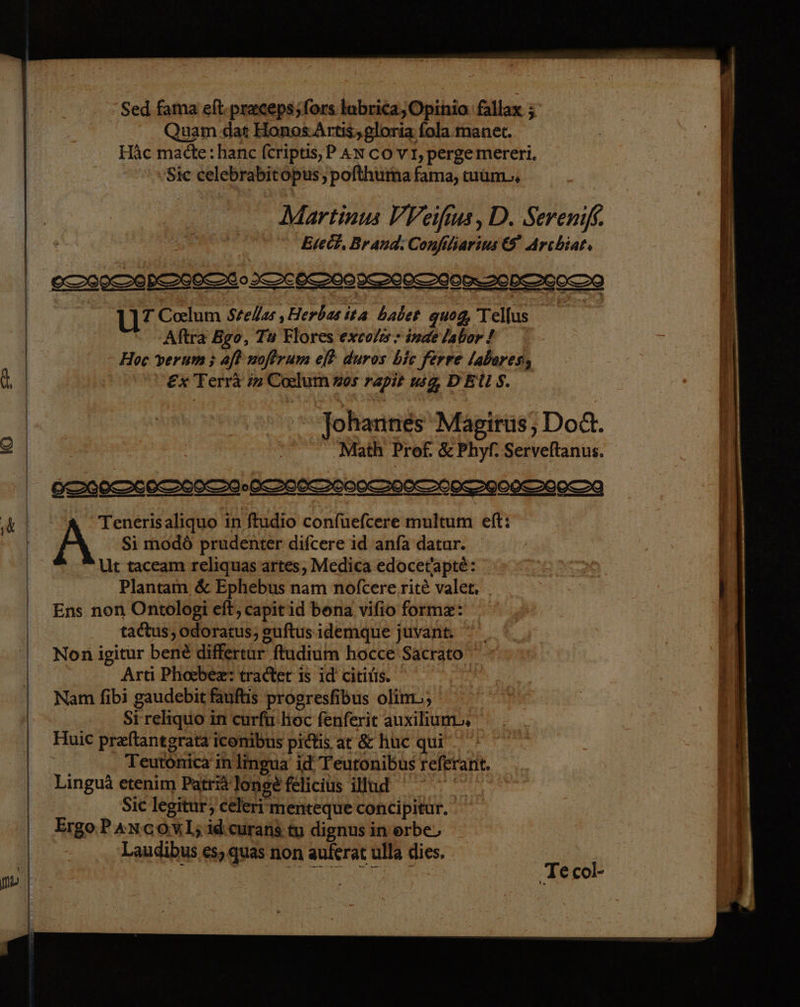 Sed fama eſt præceps; fors lubrica, Opinio fallax;
Quam dat Honos Artis, gloria ſola manet.
Hâc macte: hanc ſcriptis, PANCOVI, perge mereri.
Sic celebrabit opus, poſthuma fama, tuum.
Martinus VVeiſſius, D. Sereniſſ.
Elect. Brand. Conſiliarius & Archiat.
UT Cœlum Stellas, Herbas ita habet quoq, Tellus
Aſtra Ego, Tu Flores excolis: inde labor!
Hoc verum; aſt noſtrum eſt duros hîc ferre labores,
Ex Terrâ in Cœlum nos rapit uſq, DEUS.
Johannes Magirus, Doct.
Math Prof. & Phyſ. Serveſtanus.
A Teneris aliquo in ſtudio conſueſcere multum eſt:
Si modò prudenter diſcere id anſa datur.
Ut taceam reliquas artes, Medica edocet aptè:
Plantam & Ephebus nam noſcere ritè valet.
Ens non Ontologi eſt, capit id bona viſio formæ:
tactus, odoratus, guſtus idemque juvant.
Non igitur benè differtur ſtudium hocce Sacrato
Arti Phœbeæ: tractet is id citiùs.
Nam ſibi gaudebit fauſtis progresſibus olim,
Si reliquo in curſu hoc ſenſerit auxilium.
Huic præſtant grata iconibus pictis at & huc qui
Teutónica in lingua id Teutonibus referant.
Linguâ etenim Patriâ longè felicius illud
Sic legitur, celeri menteque concipitur.
Ergo PANCOVI, id curans tu dignus in orbe
Laudibus es, quas non auferat ulla dies.
Te col-